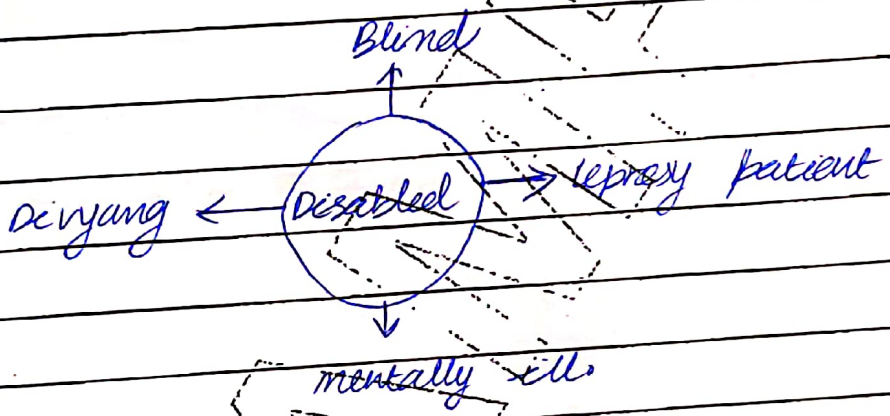 Blind
Divyang
Disabled
leprosy patient
mentally ill.